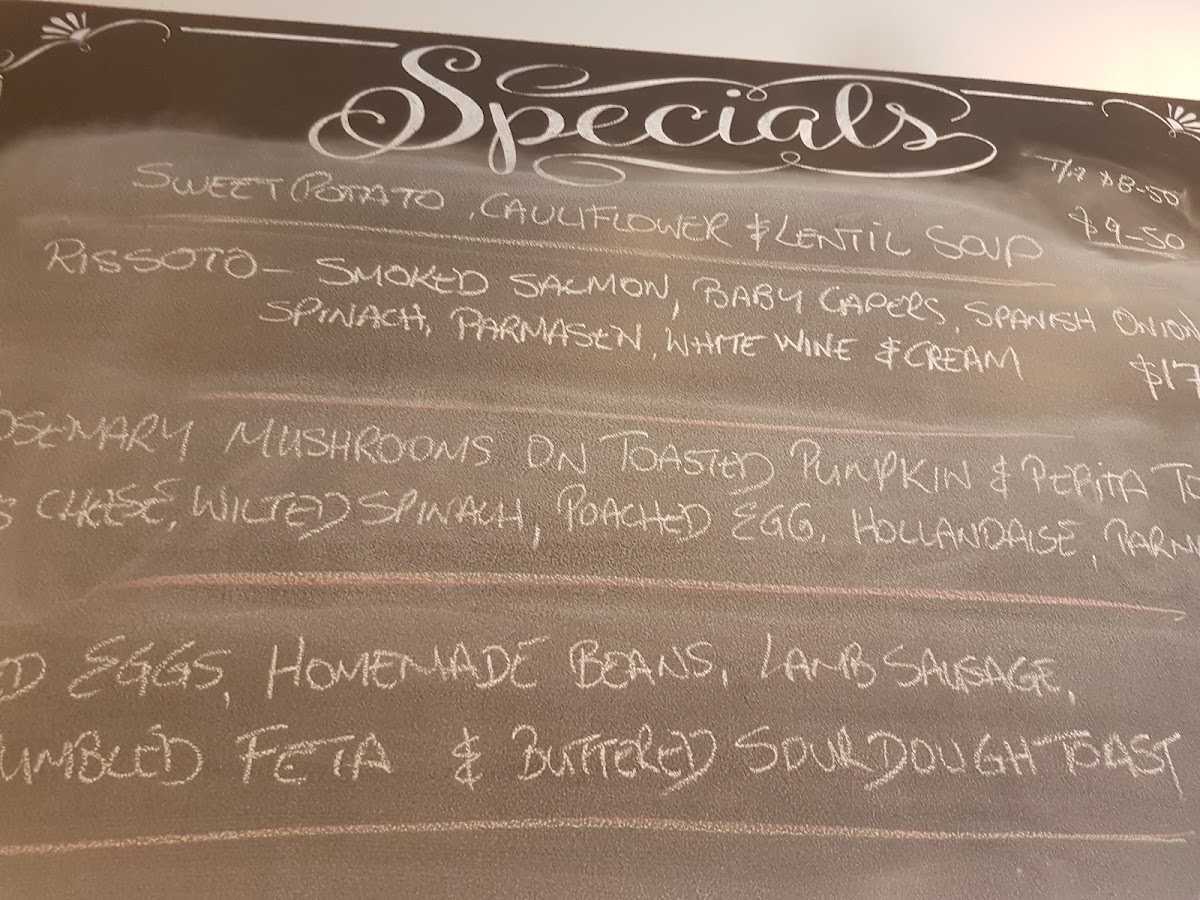 Specials
T/A $8-50
SWEET POTATO, CAULIFLOWER & LENTIL SOUP $9-50
RISSOTO - SMOKED SALMON, BABY CAPERS, SPANISH ONION
SPINACH, PARMASEN, WHITE WINE & CREAM $17
OSEMARY MUSHROOMS ON TOASTED PUMPKIN & PEPITA T
S CHEESE, WILTED SPINACH, POACHED EGG, HOLLANDAISE, PARM
ED EGGS, HOMEMADE BEANS, LAMB SAUSAGE,
UMBLED FETA & BUTTERED SOURDOUGH TOAST